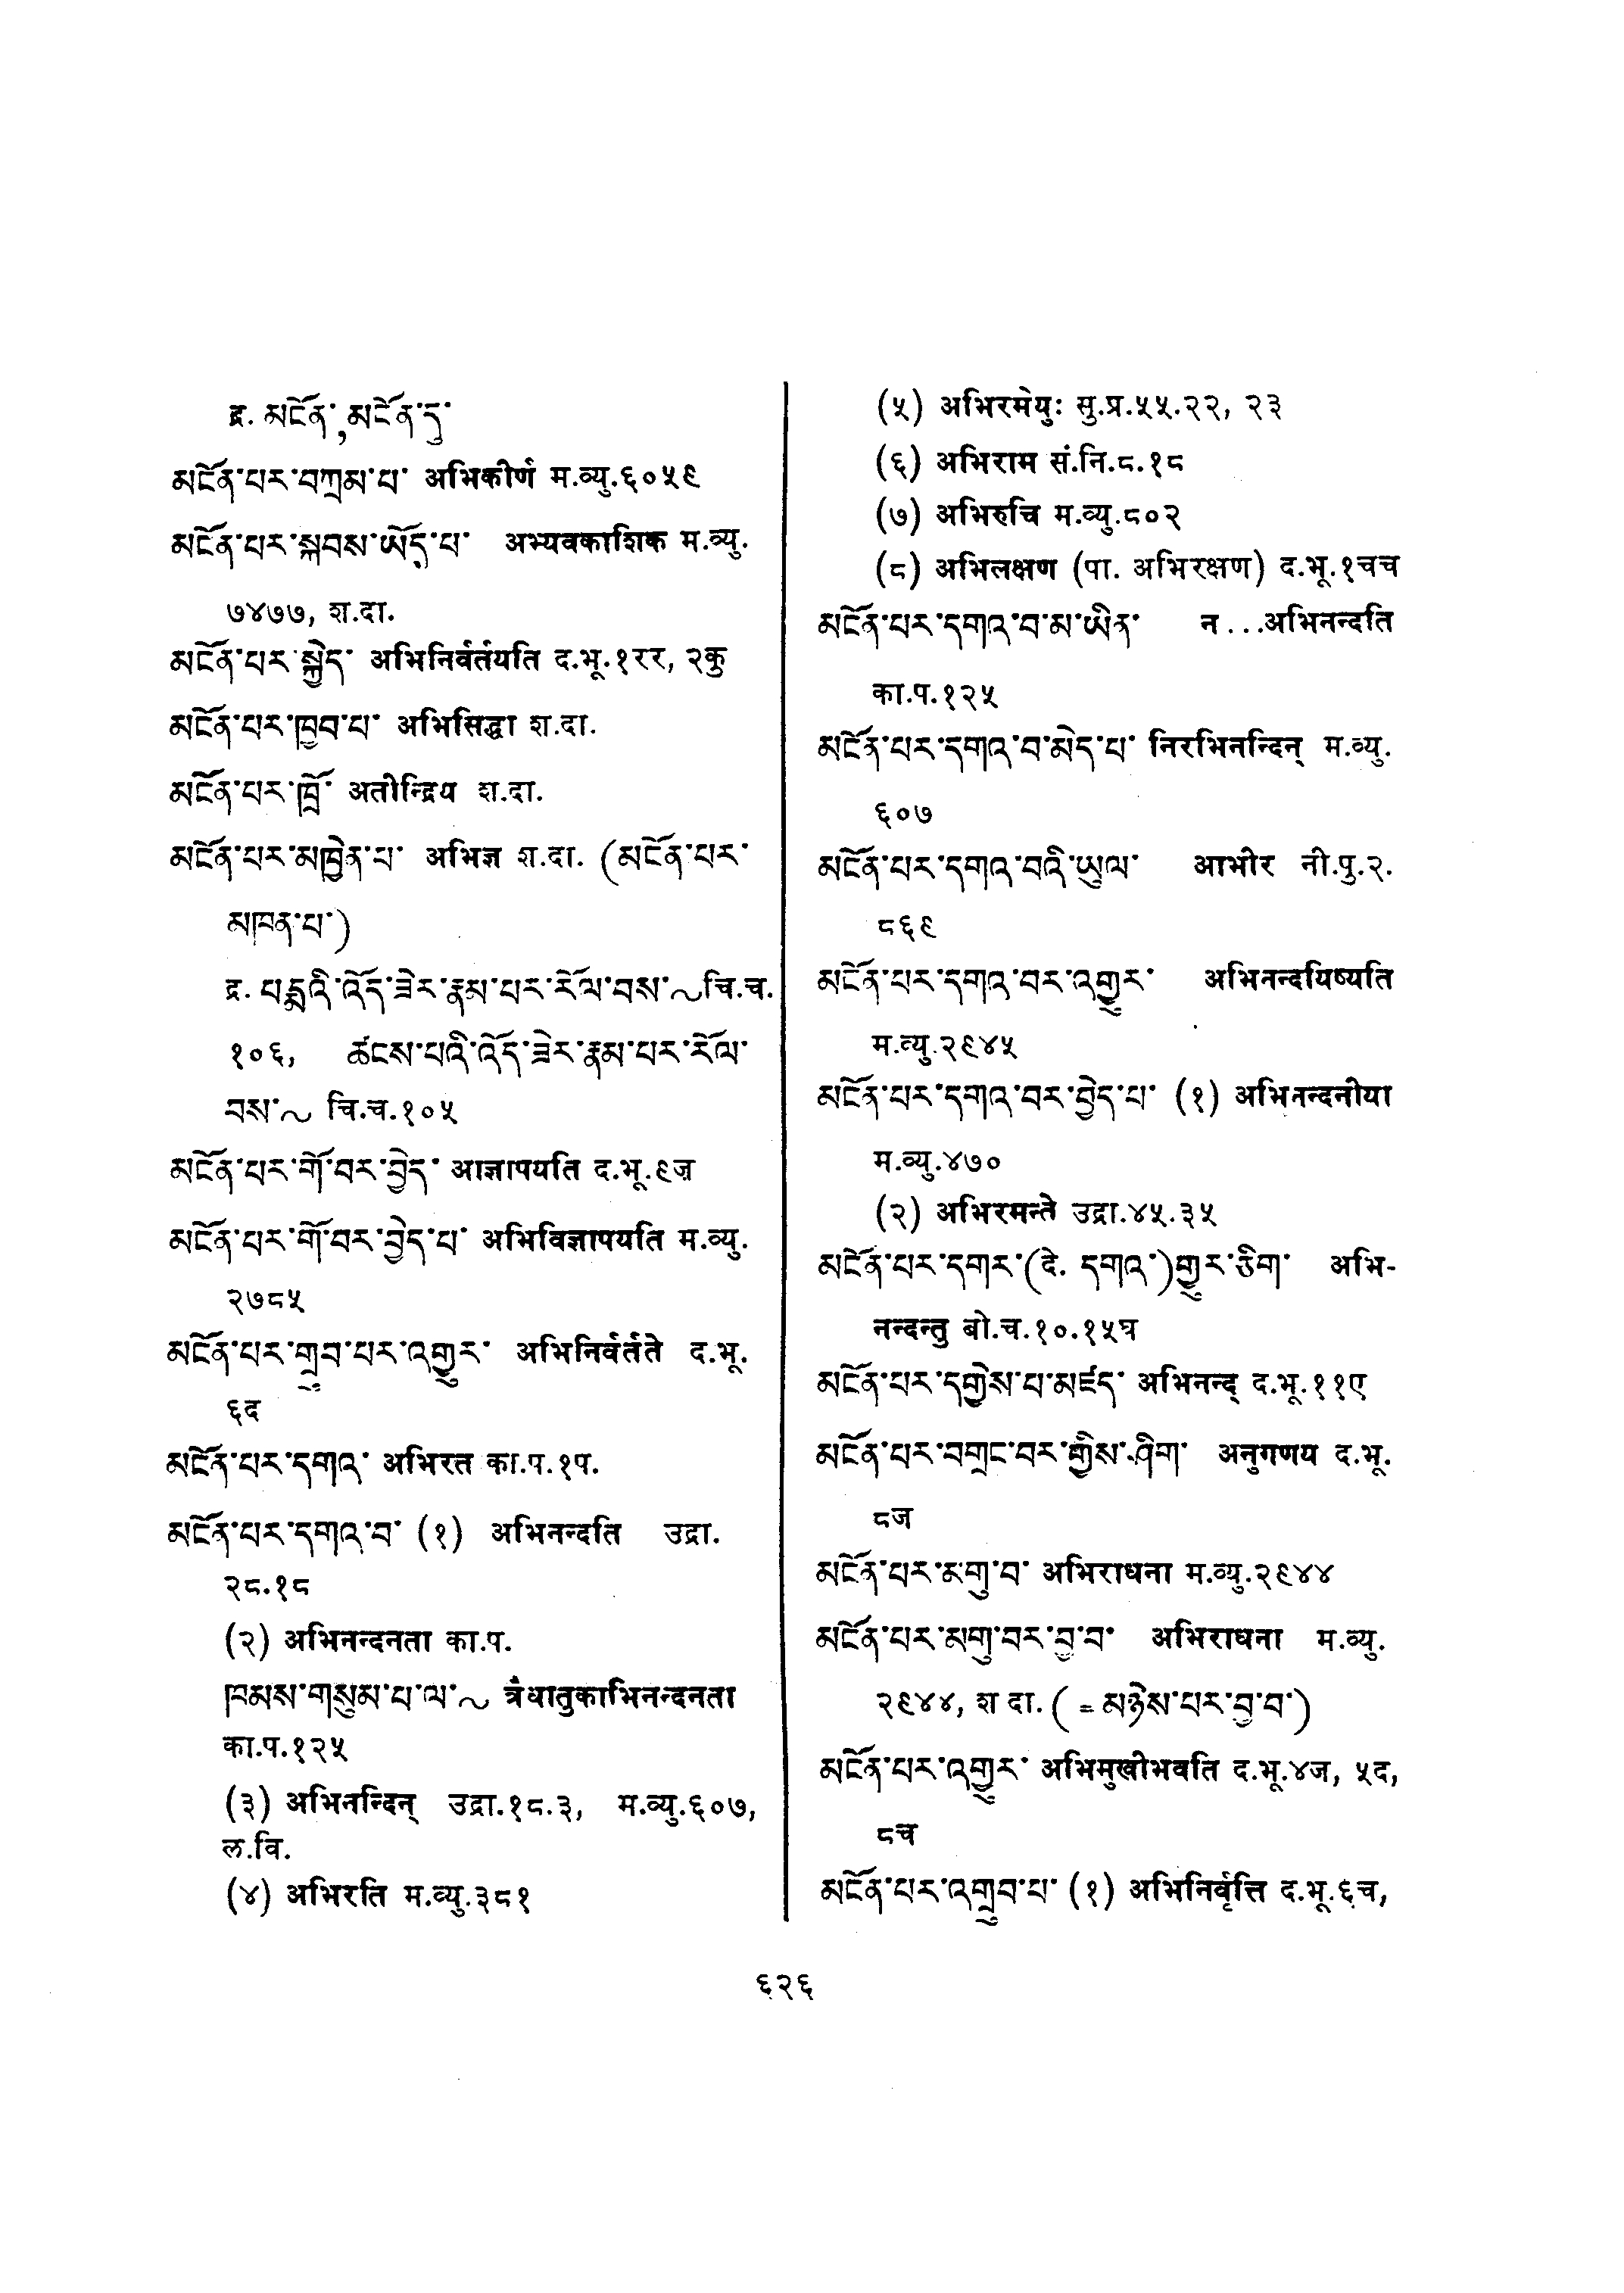 द्र. མངོན་, མངོན་དུ་
མངོན་པར་བཀྲམ་པ་ अभिकीर्ण म.व्यु.६०५९
མངོན་པར་སྐབས་ཡོད་པ་ अभ्यवकाशिक म.व्यु.
७४७७, श.दा.
མངོན་པར་སྐྱེད་ अभिनिर्वर्तयति द.भू.१रर, २कु
མངོན་པར་ཁྱབ་པ་ अभिसिद्धा श.दा.
མངོན་པར་ཁྲོ་ अतीन्द्रिय श.दा.
མངོན་པར་མཁྱེན་པ་ अभिज्ञ श.दा. (མངོན་པར་
མཁན་པ་)
द्र. པདྨའི་འོད་ཟེར་རྣམ་པར་རོལ་བས་~चि.च.
१०६, ཚངས་པའི་འོད་ཟེར་རྣམ་པར་རོལ་
བས་~ चि.च.१०५
མངོན་པར་གོ་བར་བྱེད་ आज्ञापयति द.भू.९ज
མངོན་པར་གོ་བར་བྱེད་པ་ अभिविज्ञापयति म.व्यु.
२७८५
མངོན་པར་གྲུབ་པར་འགྱུར་ अभिनिर्वर्तते द.भू.
६द
མངོན་པར་དགའ་ अभिरत का.प.१प.
མངོན་པར་དགའ་བ་ (१) अभिनन्दति उद्रा.
२८.१८
(२) अभिनन्दनता का.प.
ཁམས་གསུམ་པ་ལ་~ त्रैधातुकाभिनन्दनता
का.प.१२५
(३) अभिनन्दिन् उद्रा.१८.३, म.व्यु.६०७,
ल.वि.
(४) अभिरति म.व्यु.३८१
(५) अभिरमेयुः सु.प्र.५५.२२, २३
(६) अभिराम सं.नि.८.१८
(७) अभिरुचि म.व्यु.८०२
(८) अभिलक्षण (पा. अभिरक्षण) द.भू.१चच
མངོན་པར་དགའ་བ་མ་ཡིན་ न ...अभिनन्दति
का.प.१२५
མངོན་པར་དགའ་བ་མེད་པ་ निरभिनन्दिन् म.व्यु.
६०७
མངོན་པར་དགའ་བའི་ཡུལ་ आभीर नी.पु.२.
८६९
མངོན་པར་དགའ་བར་འགྱུར་ अभिनन्दयिष्यति
म.व्यु.२९४५
མངོན་པར་དགའ་བར་བྱེད་པ་ (१) अभिनन्दनीया
म.व्यु.४७०
(२) अभिरमन्ते उद्रा.४५.३५
མངོན་པར་དགར་(दे. དགའ་)གྱུར་ཅིག་ अभि-
नन्दन्तु बो.च.१०.१५घ
མངོན་པར་དགྱེས་པ་མཛད་ अभिनन्द् द.भू.११ए
མངོན་པར་བགྲང་བར་གྱིས་ཤིག་ अनुगणय द.भू.
८ज
མངོན་པར་མགུ་བ་ अभिराधना म.व्यु.२९४४
མངོན་པར་མགུ་བར་བྱ་བ་ अभिराधना म.व्यु.
२९४४, श दा. ( = མཉེས་པར་བྱ་བ་)
མངོན་པར་འགྱུར་ अभिमुखीभवति द.भू.४ज, ५द,
८च
མངོན་པར་འགྲུབ་པ་ (१) अभिनिर्वृत्ति द.भू.६च,
६२६